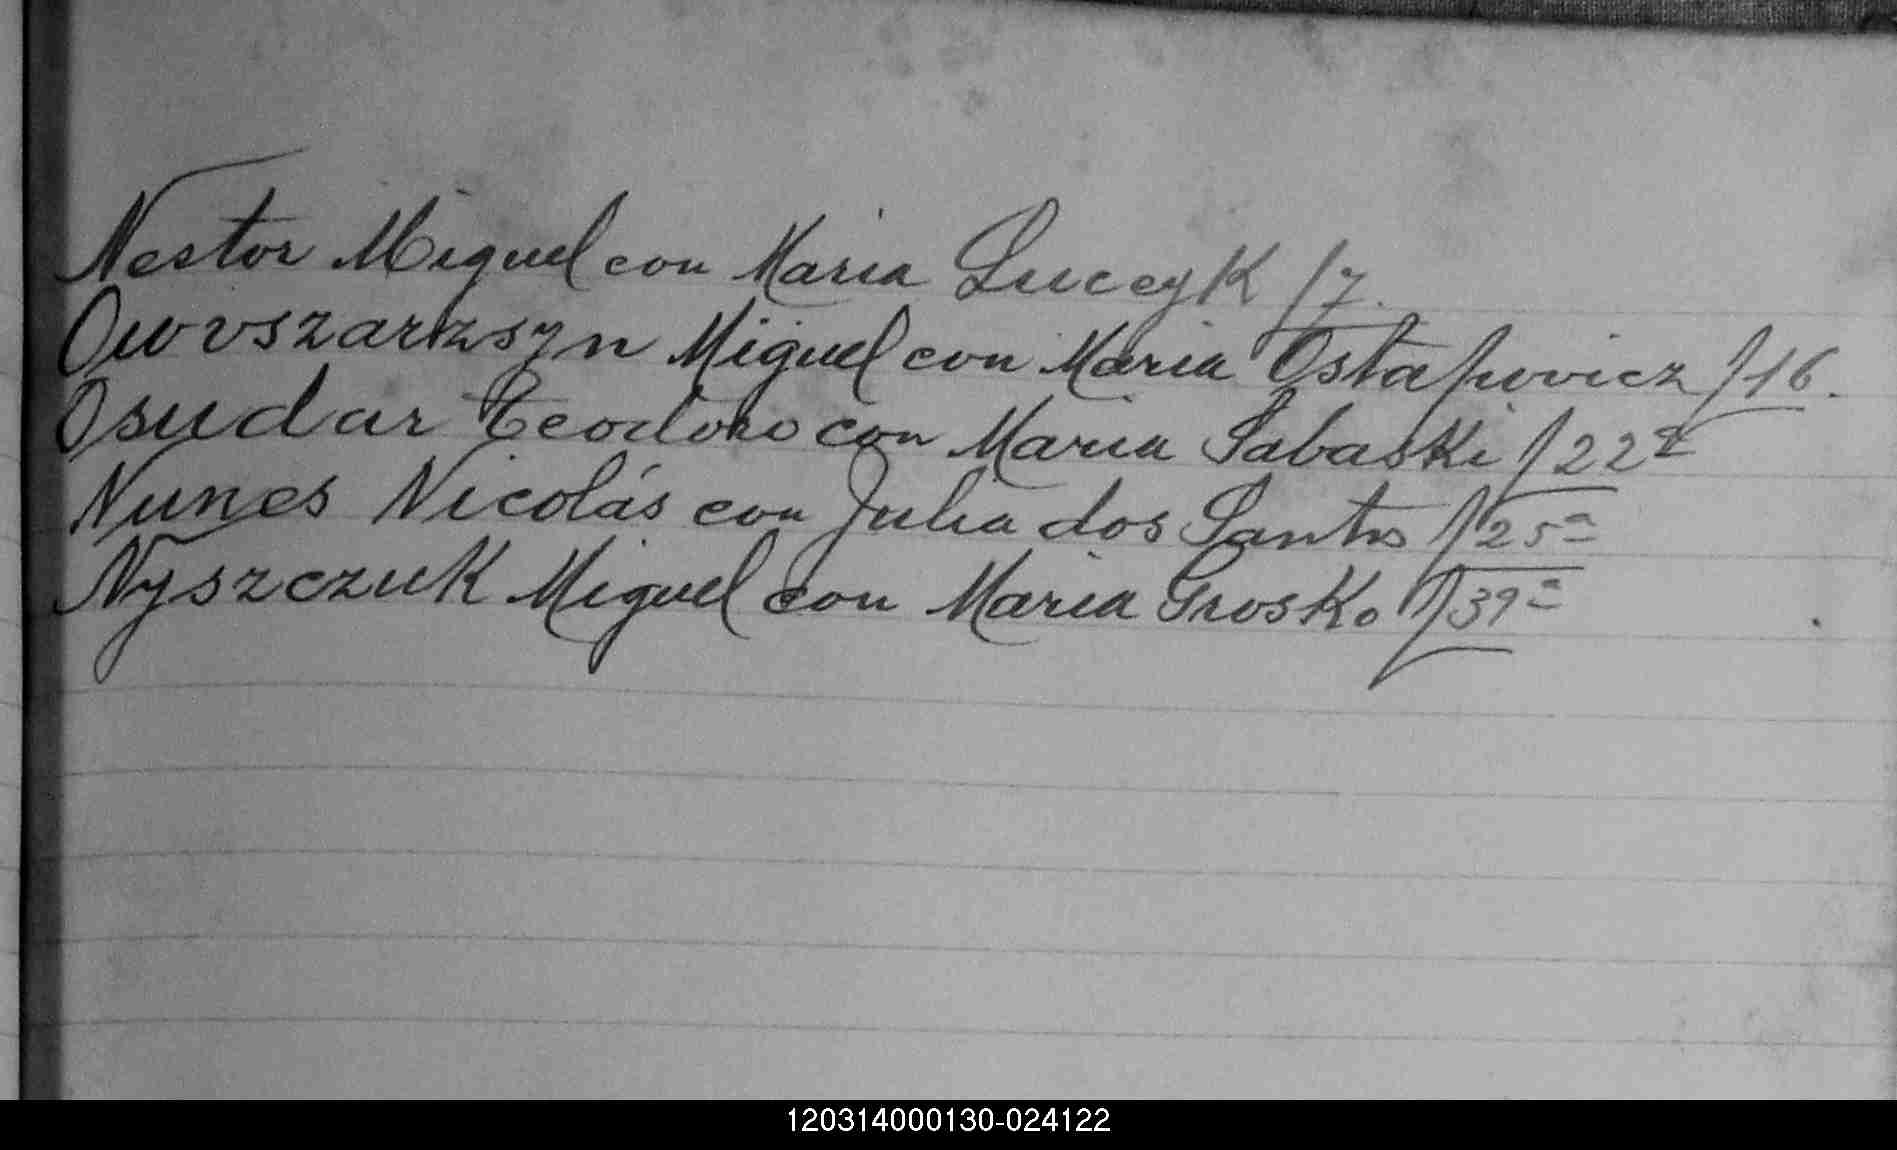 Nestor Miguel con Maria Luceyk f 7.
Owvszarzsyn Miguel con Maria Ostapovicz f 16.
Osudar Teodoro con Maria Sabaski f 22ª
Nunes Nicolás con Julia dos Santos f 25ª
Nyszczuk Miguel con Maria Grosko f 39ª
120314000130-024122